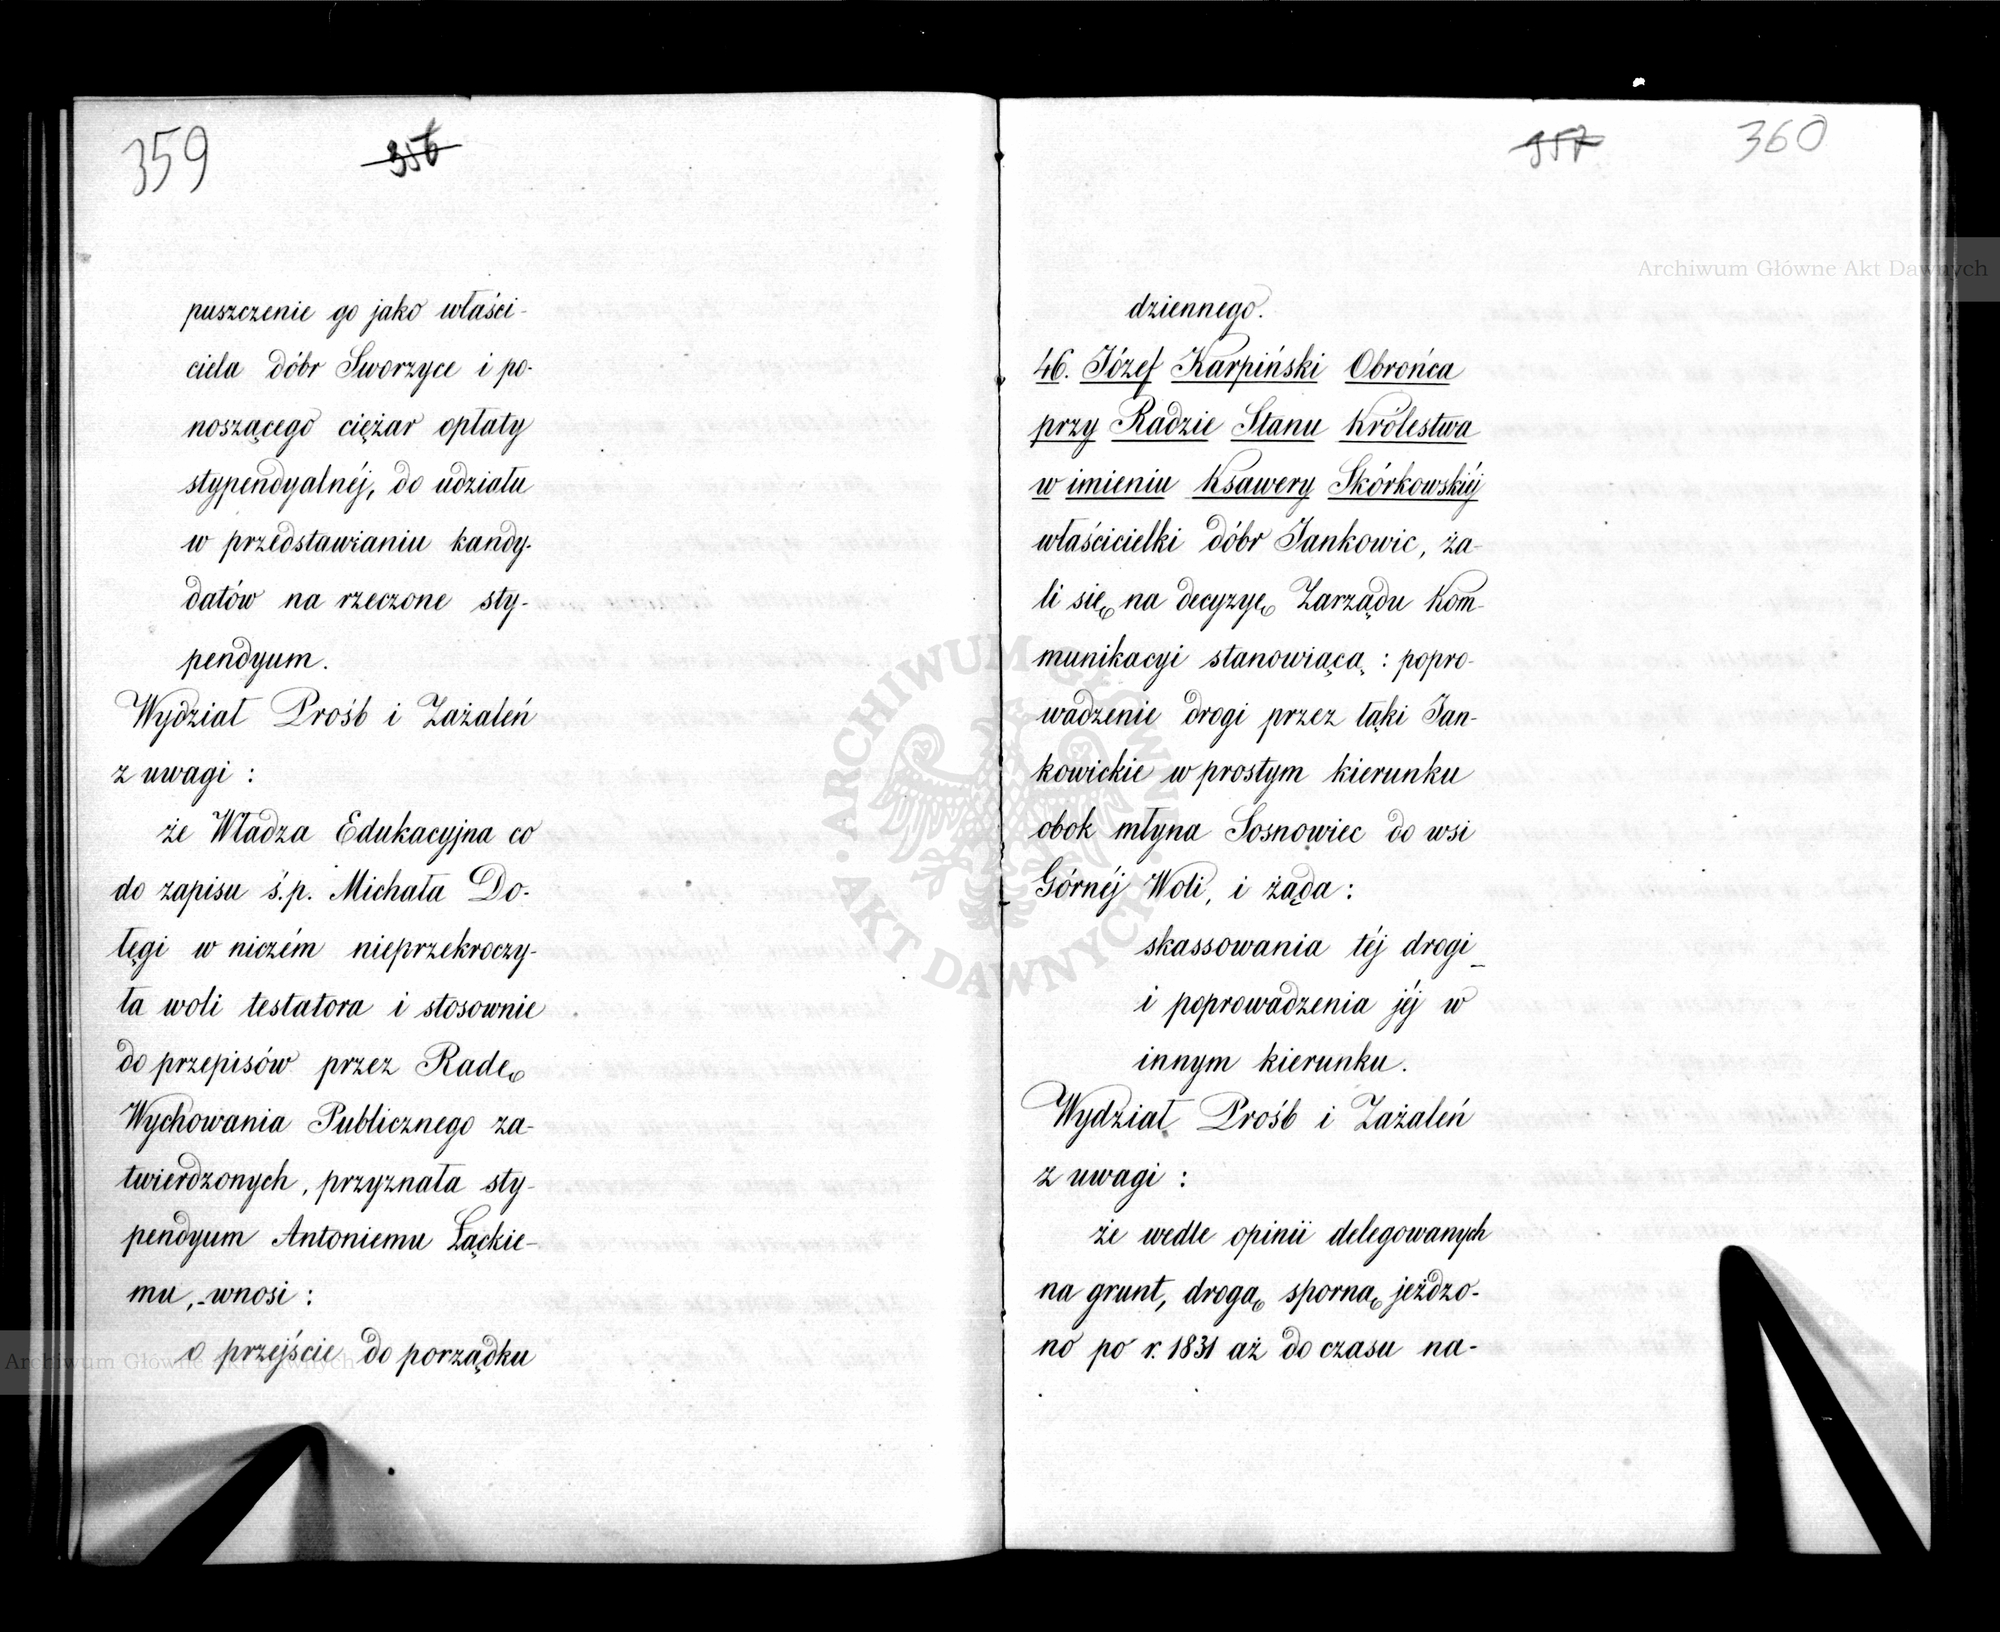 359
356
puszczenie go jako właści-
ciela dóbr Sworzyce i po-
noszącego ciężar opłaty
stypendyalnéj, do udziału
w przedstawianiu kandy-
datów na rzeczone sty-
pendyum.
Wydział Prośb i Zażaleń
z uwagi :
że Władza Edukacyjna co
do zapisu ś.p. Michała Do-
łęgi w niczém nieprzekroczy-
ła woli testatora i stosownie
do przepisów przez Radę
Wychowania Publicznego za-
twierdzonych, przyznała sty-
pendyum Antoniemu Łąckie-
mu, wnosi :
o przejście do porządku
357
360
dziennego.
46. Józef Karpiński Obrońca
przy Radzie Stanu Królestwa
w imieniu Ksawery Skórkowskiéj
właścicielki dóbr Jankowic, ża-
li się na decyzyę Zarządu Kom-
munikacyi stanowiącą : popro-
wadzenie drogi przez łąki Jan-
kowickie w prostym kierunku
obok młyna Sosnowiec do wsi
Górnéj Woli, i żąda :
skassowania téj drogi
i poprowadzenia jéj w
innym kierunku.
Wydział Prośb i Zażaleń
z uwagi :
że wedle opinii delegowanych
na grunt, drogą sporną jeżdzo-
no po r. 1831 aż do czasu na-
Archiwum Główne Akt Dawnych
Archiwum Główne Akt Dawnych
ARCHIWUM GŁÓWNE AKT DAWNYCH